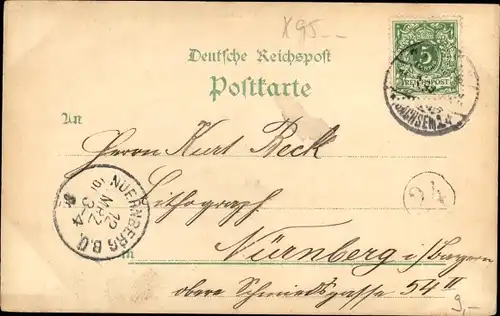 X95--
Deutsche Reichspost
Postkarte
5
REICHSPOST
SACHSEN
An
Herrn Kurt Beck
Lithograph
24
in Nürnberg i/Bayern
obere Schmiedsgasse 54 II
NUERNBERG B.O.
12
MRZ
3-4
9,-